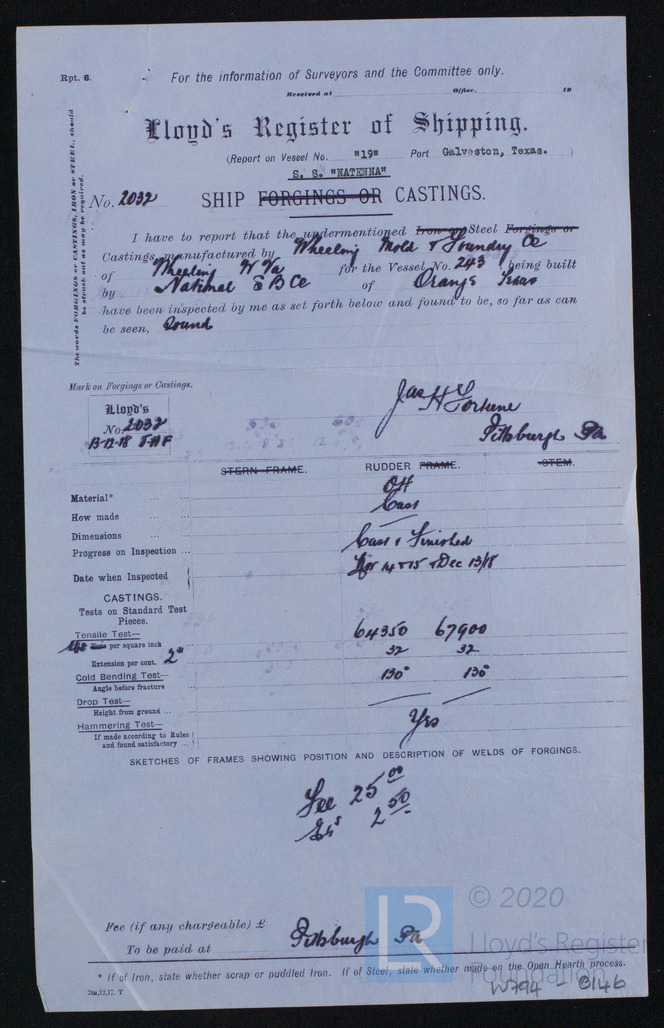 Rpt. 6.
For the information of Surveyors and the Committee only.
Received at Office, 19
Lloyd's Register of Shipping.
(Report on Vessel No. "19" Port Galveston, Texas. )
S. S. "NATENNA"
No. 2032
SHIP FORGINGS OR CASTINGS.
The words FORGINGS or CASTINGS, IRON or STEEL, should
be struck out as may be required.
I have to report that the undermentioned Iron or Steel Forgings or
Castings, manufactured by Wheeling Mold & Foundry Co
of Wheeling W Va for the Vessel No. 243 , being built
by National S B Co of Orange Texas
have been inspected by me as set forth below and found to be, so far as can
be seen, Sound
Mark on Forgings or Castings.
Lloyd's
No. 2032
13-12-18 JHF
Jas H Fortune
Pittsburgh Pa
STERN FRAME. RUDDER FRAME. STEM.
Material* ... ... OH
How made ... ... Cast
Dimensions ... ...
Progress on Inspection ... Cast & Finished
Date when Inspected 14 & 15 & Dec 13/18
CASTINGS.
Tests on Standard Test
Pieces.
Tensile Test— 64350 67900
Tons per square inch
Extension per cent. 2" 32 32
Cold Bending Test— 130° 130°
Angle before fracture ...
Drop Test—
Height from ground ... ...
Hammering Test— Yes
If made according to Rules
and found satisfactory ...
SKETCHES OF FRAMES SHOWING POSITION AND DESCRIPTION OF WELDS OF FORGINGS.
Fee 25 00
2 50
Fee (if any chargeable) £
To be paid at Pittsburgh Pa
* If of Iron, state whether scrap or puddled Iron. If of Steel, state whether made on the Open Hearth process.
2m,12,11. T
W794 - 0146
LR
© 2020
Lloyd's Register
Foundation